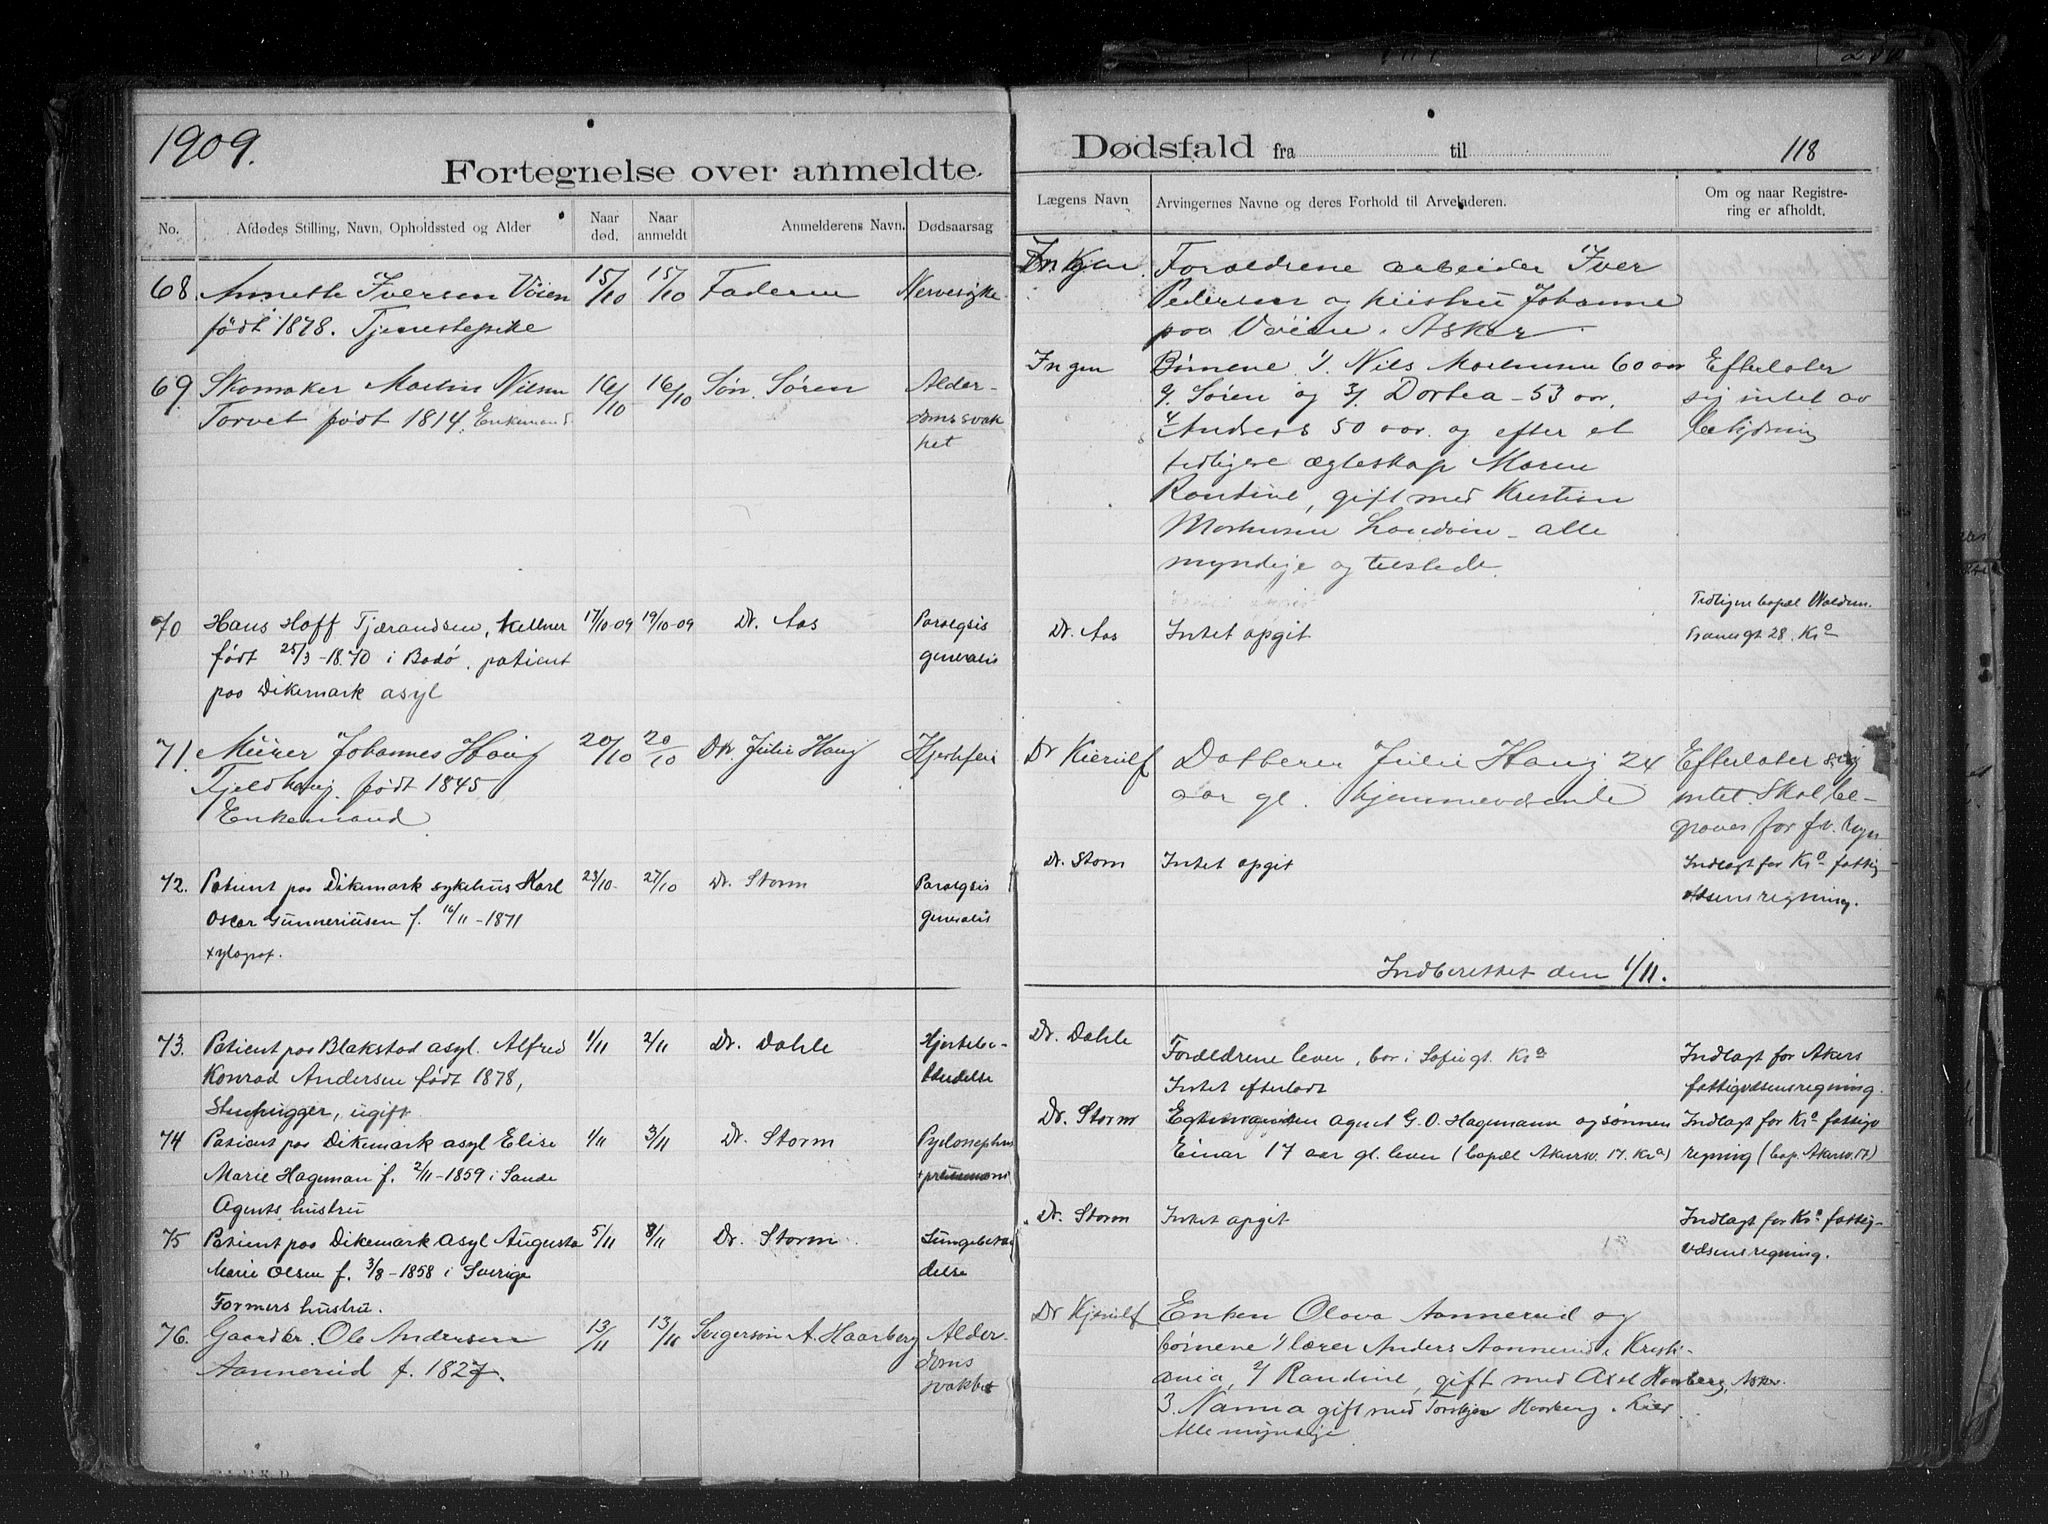 1909.
Fortegnelse over anmeldte
Dødsfald fra til
118
No.
Afdødes Stilling, Navn, Opholdssted og Alder
Naar død.
Naar anmeldt
Anmelderens Navn.
Dødsaarsag
Lægens Navn
Arvingernes Navne og deres Forhold til Arveladeren.
Om og naar Registre-
ring er afholdt.
68. Anneth Iversen Vøien
født 1878. Tjenestepike
15/10
15/10
Faderen
Nervesyke
Ingen.
Forældrene arbeider Iver
Pedersen og hustru Johanne
paa Vøien, Asker
69. Skomaker Martin Nilsen
Torvet født 1814. Enkemand
16/10
16/10
Søn Søren
Alder-
domssvak
het
Ingen
Børnene 1/. Nils 60 aar
2/. Søren og 3/. Dortea - 53 aar,
4/ Anders 50 aar og efter et
tidligere ægteskap Maren
Randine, gift med Kristian
alle
myndige og tilstede.
Efterlater
sig intet av
betydning
70 Hans Hoff Tjærandsen, kellner
født 25/3-1870 i Bodø, patient
paa Dikemark asyl
17/10-09
19/10-09
Dr. Aas
Paralysis
generalis
Dr. Aas
Intet opgit
Tidligere bopæl Waldem.
Tranesgt 28. Kra
71. Murer Johannes Haug
Fjeldhaug. født 1845
Enkemand
20/10
20/10
Dtr. Julie Haug
Hjertefeil
Dr Kierulf
Datteren Julie Haug 24
aar gl. hjemmeværende
Efterlater sig
intet. Skal be-
graves for fv. regn
72. Patient paa Dikemark sykehus Karl
Oscar Gunneriusen f. 16/11-1871
xylograf.
23/10-
27/10
Dr. Storm
Paralysis
generalis
Dr. Storm
Intet opgit
Indlagt for Kra fattig
væsensregning.
Indberettet den 1/11.
73. Patient paa Blakstad asyl. Alfred
Konrad Andersen født 1878,
Stenhugger, ugift.
1/11
2/11
Dr. Dahle
Hjertebe-
tændelse
Dr. Dahle
Forældrene lever, bor i Sofiegt. Kra
Intet efterladt
Indlagt for Akers
fattigvæsensregning.
74 Patient paa Dikemark asyl Elise
Marie Hageman f. 2/11-1859 i Sande
Agents hustru
1/11
3/11
Dr. Storm
Dr. Storm
Egtemanden agent G. O. Hagemann og sønnen
Einar 17 aar gl. lever (bopæl Akersv. 17. Kra)
Indlagt for Kra fattigv
regning (bop. Akersv. 17)
75 Patient paa Dikemark asyl Augusta
Marie Olsen f. 3/8-1858 i Sverige
Formers hustru.
5/11
8/11
Dr. Storm.
Lungebetæn
delse
Dr. Storm
Intet opgit
Indlagt for Kra fattig-
væsensregning.
76. Gaardbr. Ole Andersen
Aannerud f. 1827.
13/11
13/11
Svigersøn A. Haarberg
Alder-
doms
svakhet
Dr Kjerulf
Enken Olava Aannerud og
børnene 1/ lærer Anders Aannerud, Kristi-
ania, 2/ Randine, gift med Axel Haarberg, Asker
3. Nanna gift med Haarberg,
Alle myndige